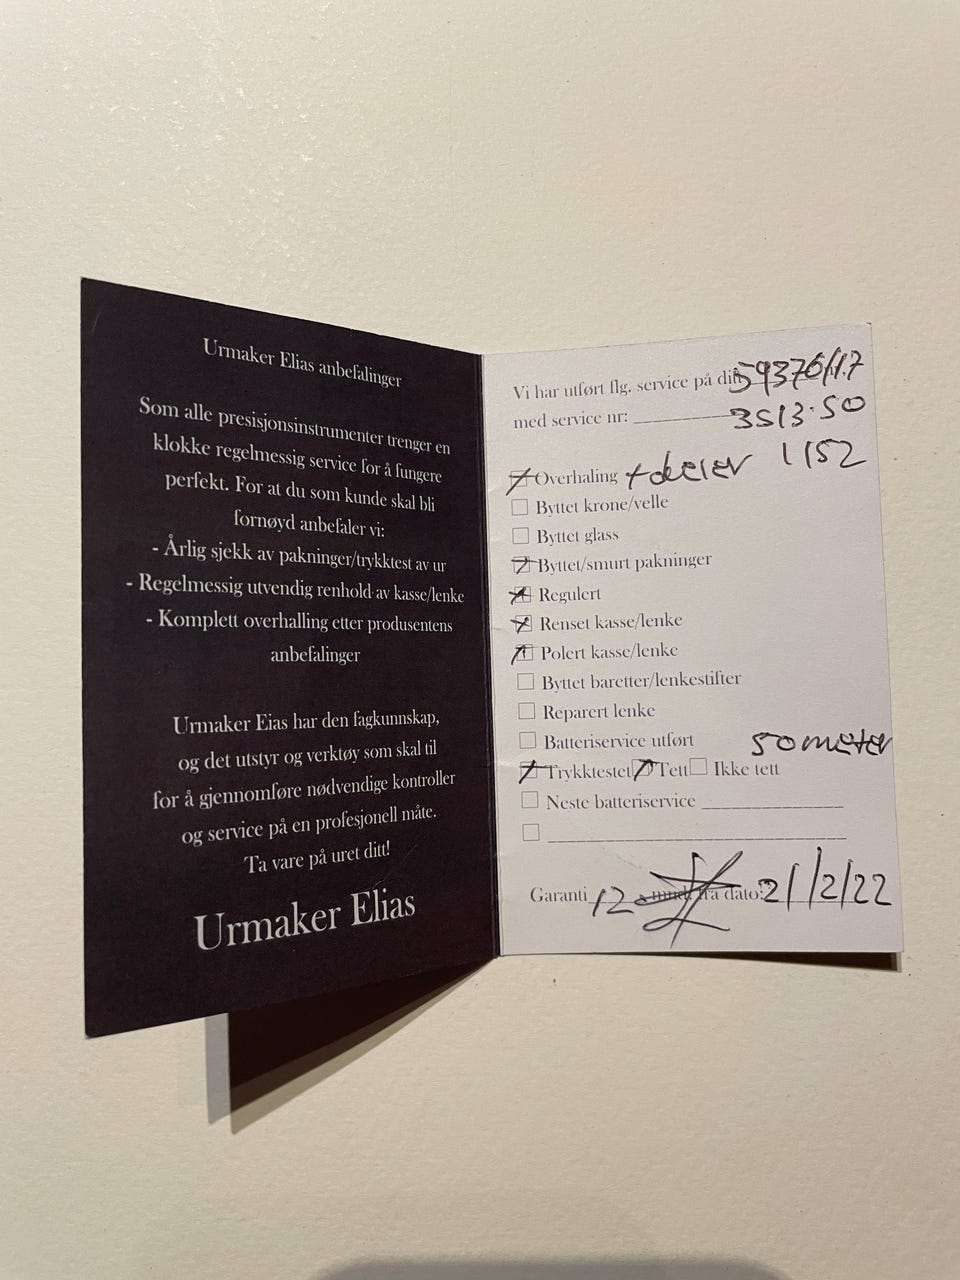 Urmaker Elias anbefalinger
Som alle presisjonsinstrumenter trenger en
klokke regelmessig service for å fungere
perfekt. For at du som kunde skal bli
fornøyd anbefaler vi:
- Årlig sjekk av pakninger/trykktest av ur
- Regelmessig utvendig renhold av kasse/lenke
- Komplett overhalling etter produsentens
anbefalinger
Urmaker Eias har den fagkunnskap,
og det utstyr og verktøy som skal til
for å gjennomføre nødvendige kontroller
og service på en profesjonell måte.
Ta vare på uret ditt!
Urmaker Elias
Vi har utført flg. service på ditt 59376/17
med service nr: 3513.50
1152
Overhaling + deler
Byttet krone/velle
Byttet glass
Byttet/smurt pakninger
Regulert
Renset kasse/lenke
Polert kasse/lenke
Byttet baretter/lenkestifter
Reparert lenke
Batteriservice utført
50 meter
Trykktestet Tett Ikke tett
Neste batteriservice
Garanti 12 mnd. fra dato: 2/12/22